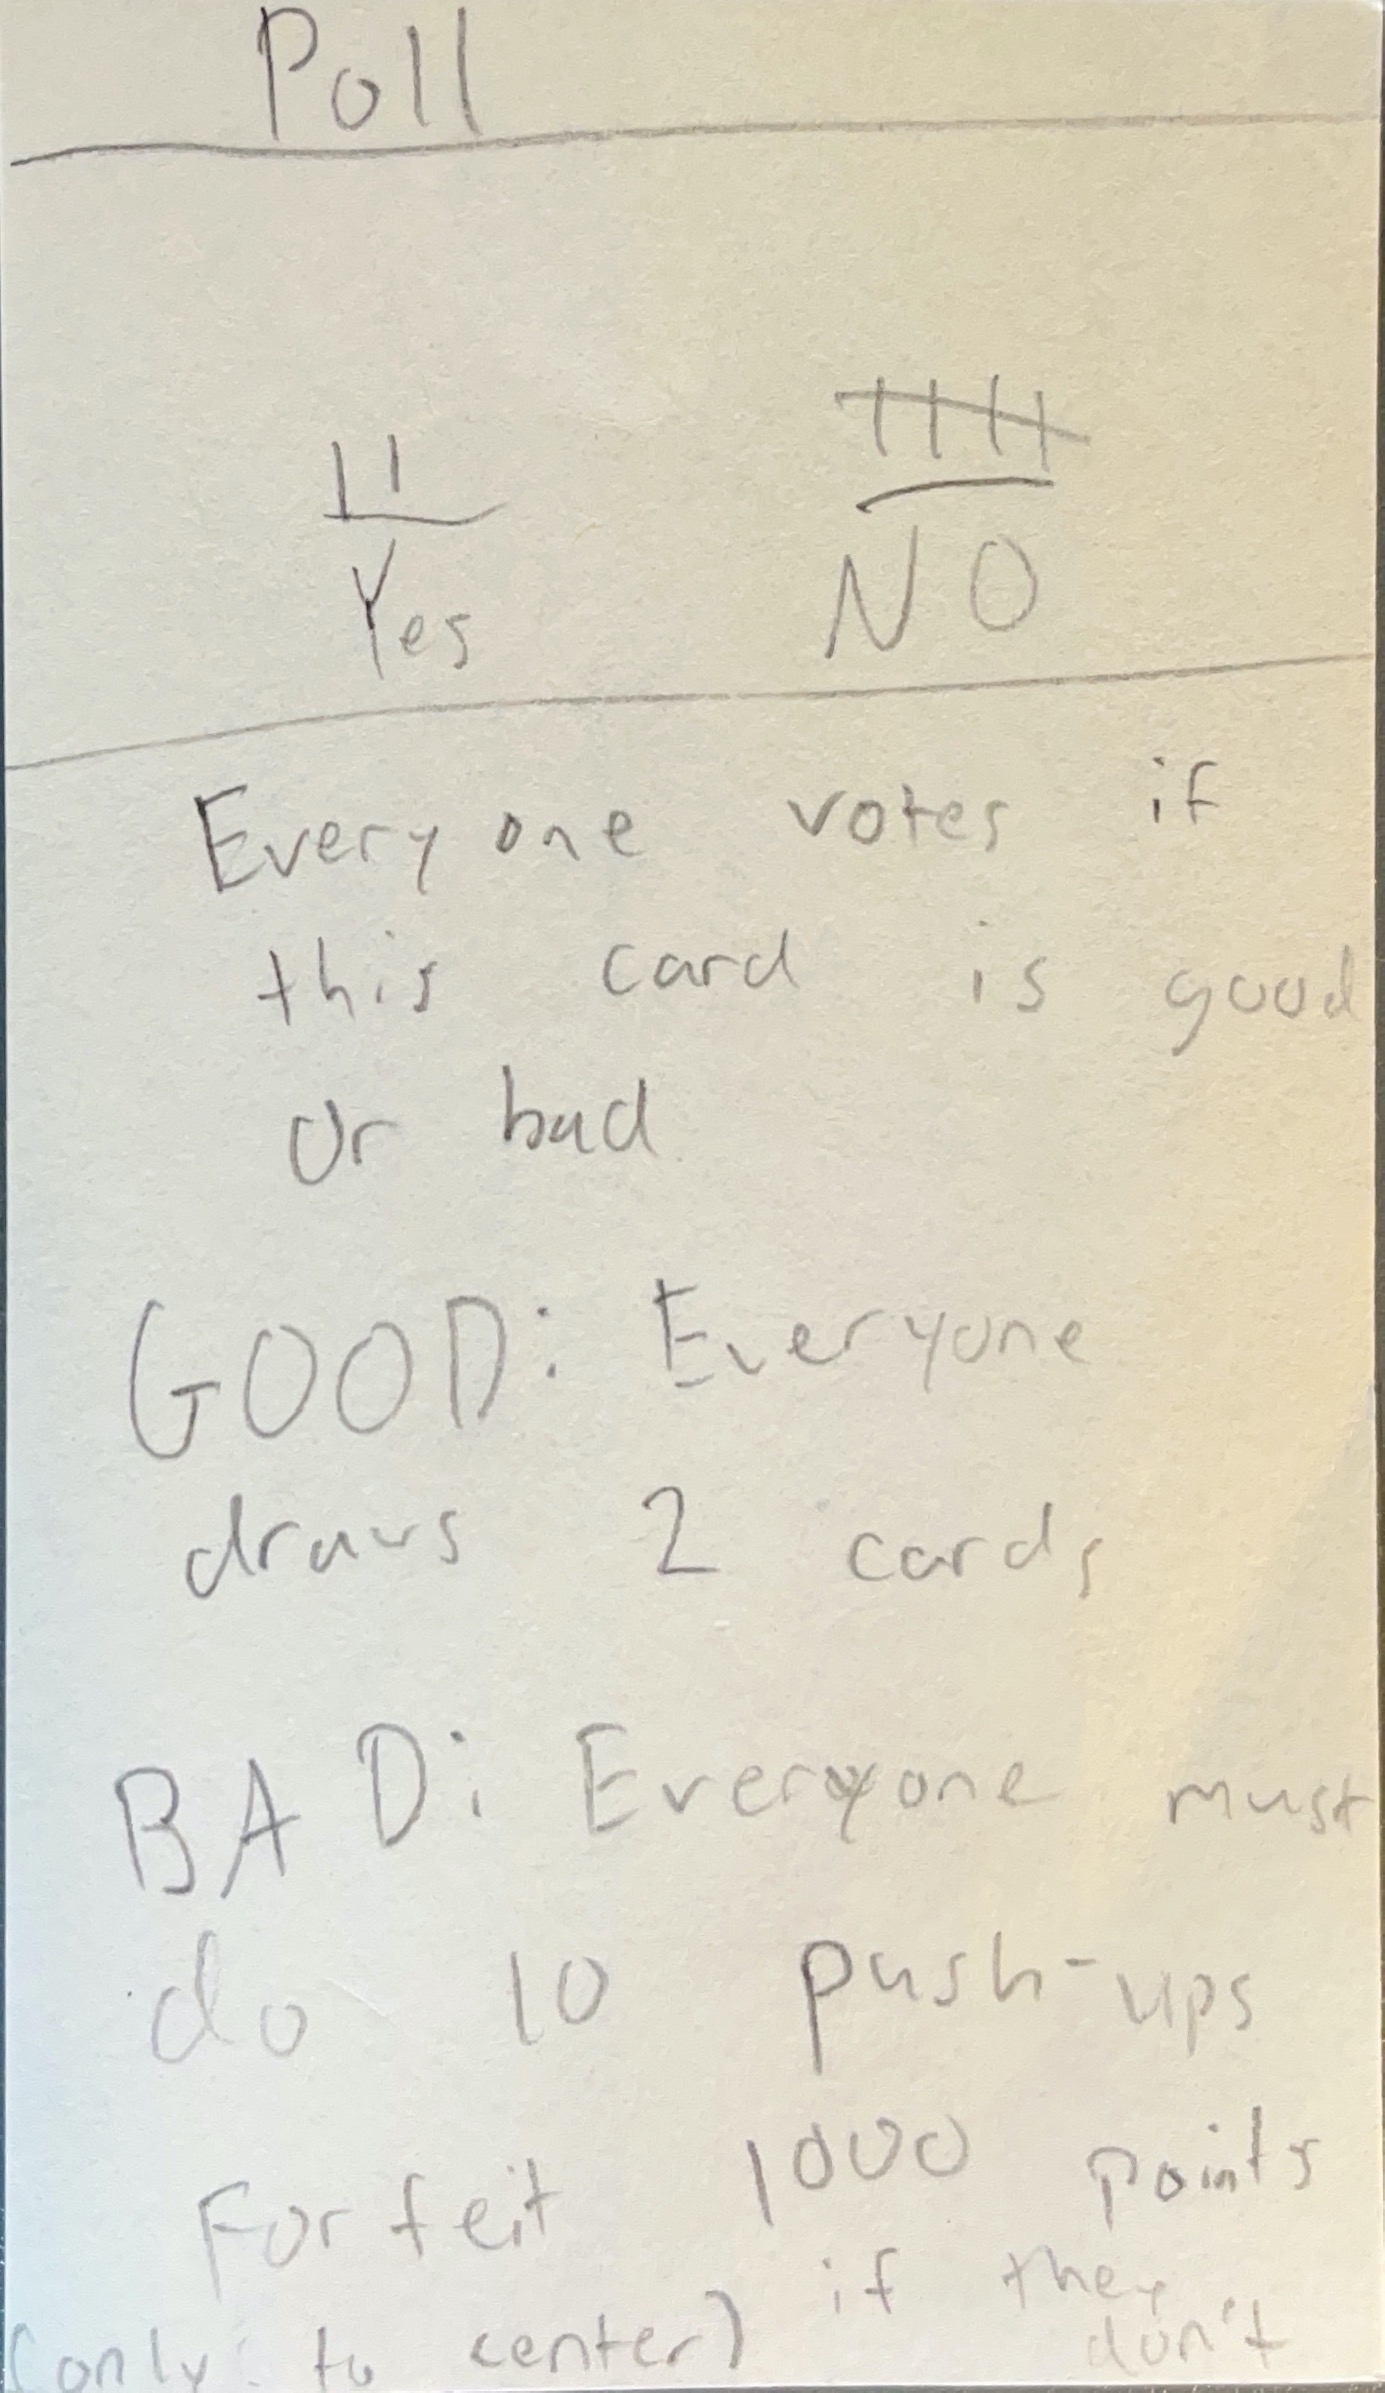 Poll
Yes NO
Everyone votes if
this card is good
or bad
GOOD: Everyone
draws 2 cards
BAD: Everyone must
do 10 push-ups
Forfeit 1000 points
if they don't
(only to center)